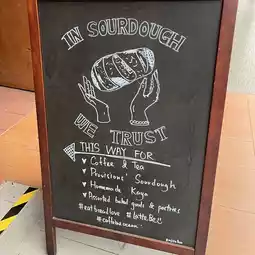 IN SOURDOUGH
WE TRUST
THIS WAY FOR
Coffee & Tea
Provisions' Sourdough
Homemade Kaya
Assorted baked goods & pastries
#eatbreadlove